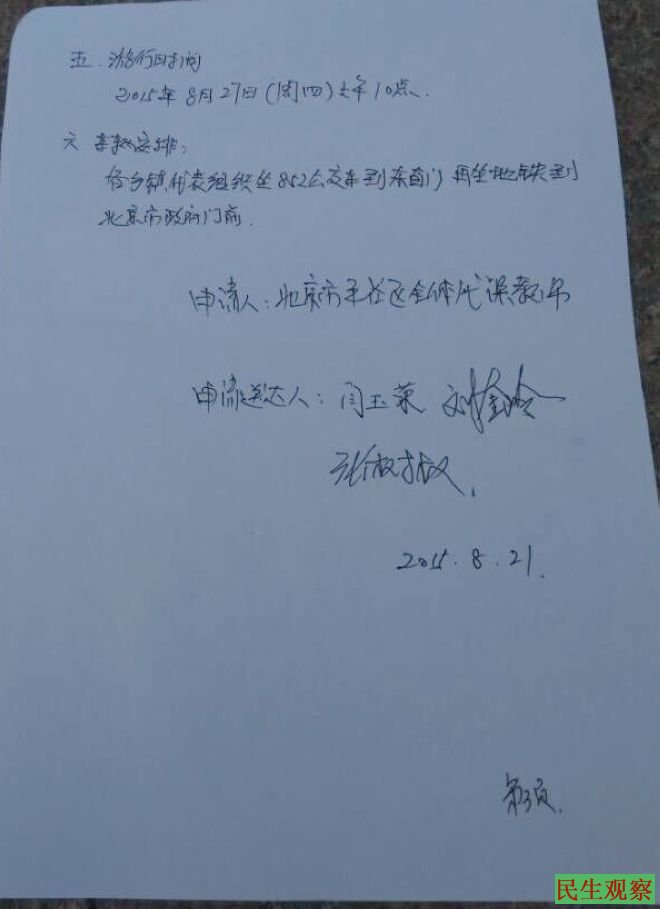 五.游行时间
2015年8月27日(周四)上午10点.
六 车辆安排:
各乡镇代表组织坐852公交车到东直门 再坐地铁到
北京市政府门前.
申请人:北京市平谷区全体代课教师
申请送达人:闫玉荣
2015.8.21.
第3页.
民生观察